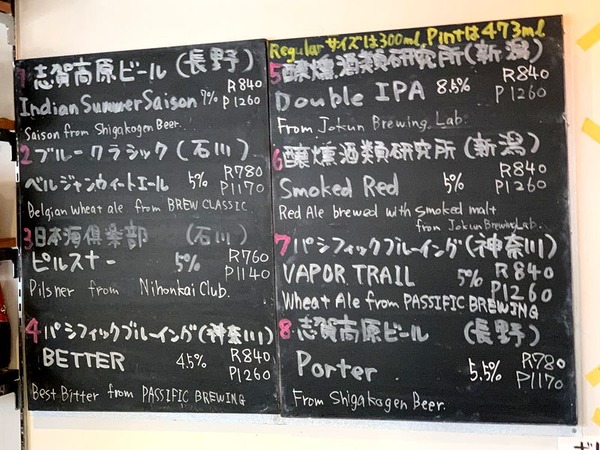 1 志賀高原ビール (長野)
Indian Summer Saison 7% R840
P1260
Saison from Shigakogen Beer.
2 ブルークラシック (石川)
ベルジャンウィートエール 5% R780
P1170
Belgian wheat ale from BREW CLASSIC.
3 日本海倶楽部 (石川)
ピルスナー 5% R760
P1140
Pilsner from Nihonkai Club.
4 パシフィックブルーイング(神奈川)
BETTER 4.5% R840
P1260
Best Bitter from PASSIFIC BREWING
Regular サイズは300ml, Pintは473ml
5 醸燻酒類研究所(新潟)
Double IPA 8.5% R840
P1260
From Jokun Brewing Lab.
6 醸燻酒類研究所(新潟)
Smoked Red 5% R840
P1260
Red Ale brewed with smoked malt
from Jokun Brewing Lab.
7 パシフィックブルーイング(神奈川)
VAPOR TRAIL 5% R840
P1260
Wheat Ale from PASSIFIC BREWING
8 志賀高原ビール (長野)
Porter 5.5% R780
P1170
From Shigakogen Beer.